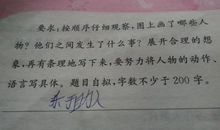 要求：按顺序仔细观察，图上画了哪些人
物？他们之间发生了什么事？展开合理的想
象，再有条理地写下来，要努力将人物的动作、
语言写具体。题目自拟，字数不少于200字。